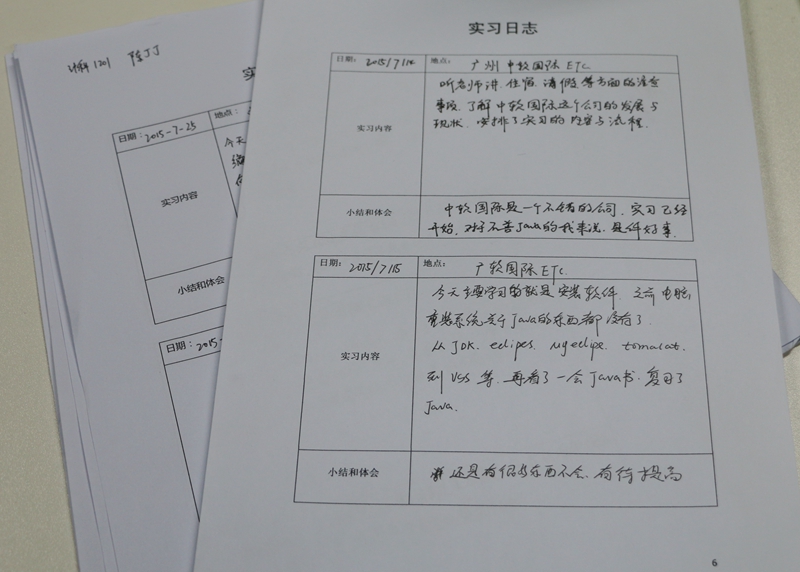 实习日志
日期： 2015/7/14 地点： 广州中软国际ETC
实习内容
听老师讲. 住宿. 请假等方面的注意
事项. 了解中软国际这个公司的发展与
现状. 安排了实习的内容与流程.
小结和体会
中软国际是一个不错的公司. 实习已经
开始. 对于不善Java的我来说. 是件好事.
日期： 2015/7/15 地点： 广软国际ETC.
实习内容
今天主要学习的就是安装软件. 之前电脑
重装系统关于Java的东西都没有了.
从JDK. eclipes. Myeclipe. tomacat.
到VSS等. 再看了一会Java书. 复习了
Java.
小结和体会
还是有很多东西不会. 有待提高
6
计科1201 陈丁丁
实
日期：2015-7-25 地点：
今天
实习内容
小结和体会
日期：2015-